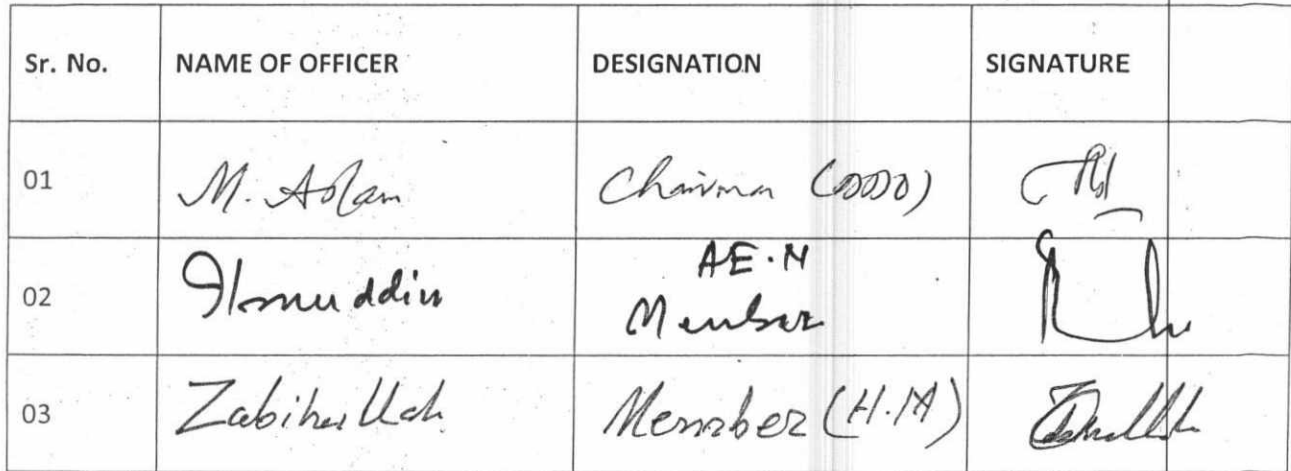 Sr. No. NAME OF OFFICER DESIGNATION SIGNATURE
01 M. Aslam Chairman (DDDO)
AE.M
02 Ilmuddin Member
03 Zabihullah Member (H.M)